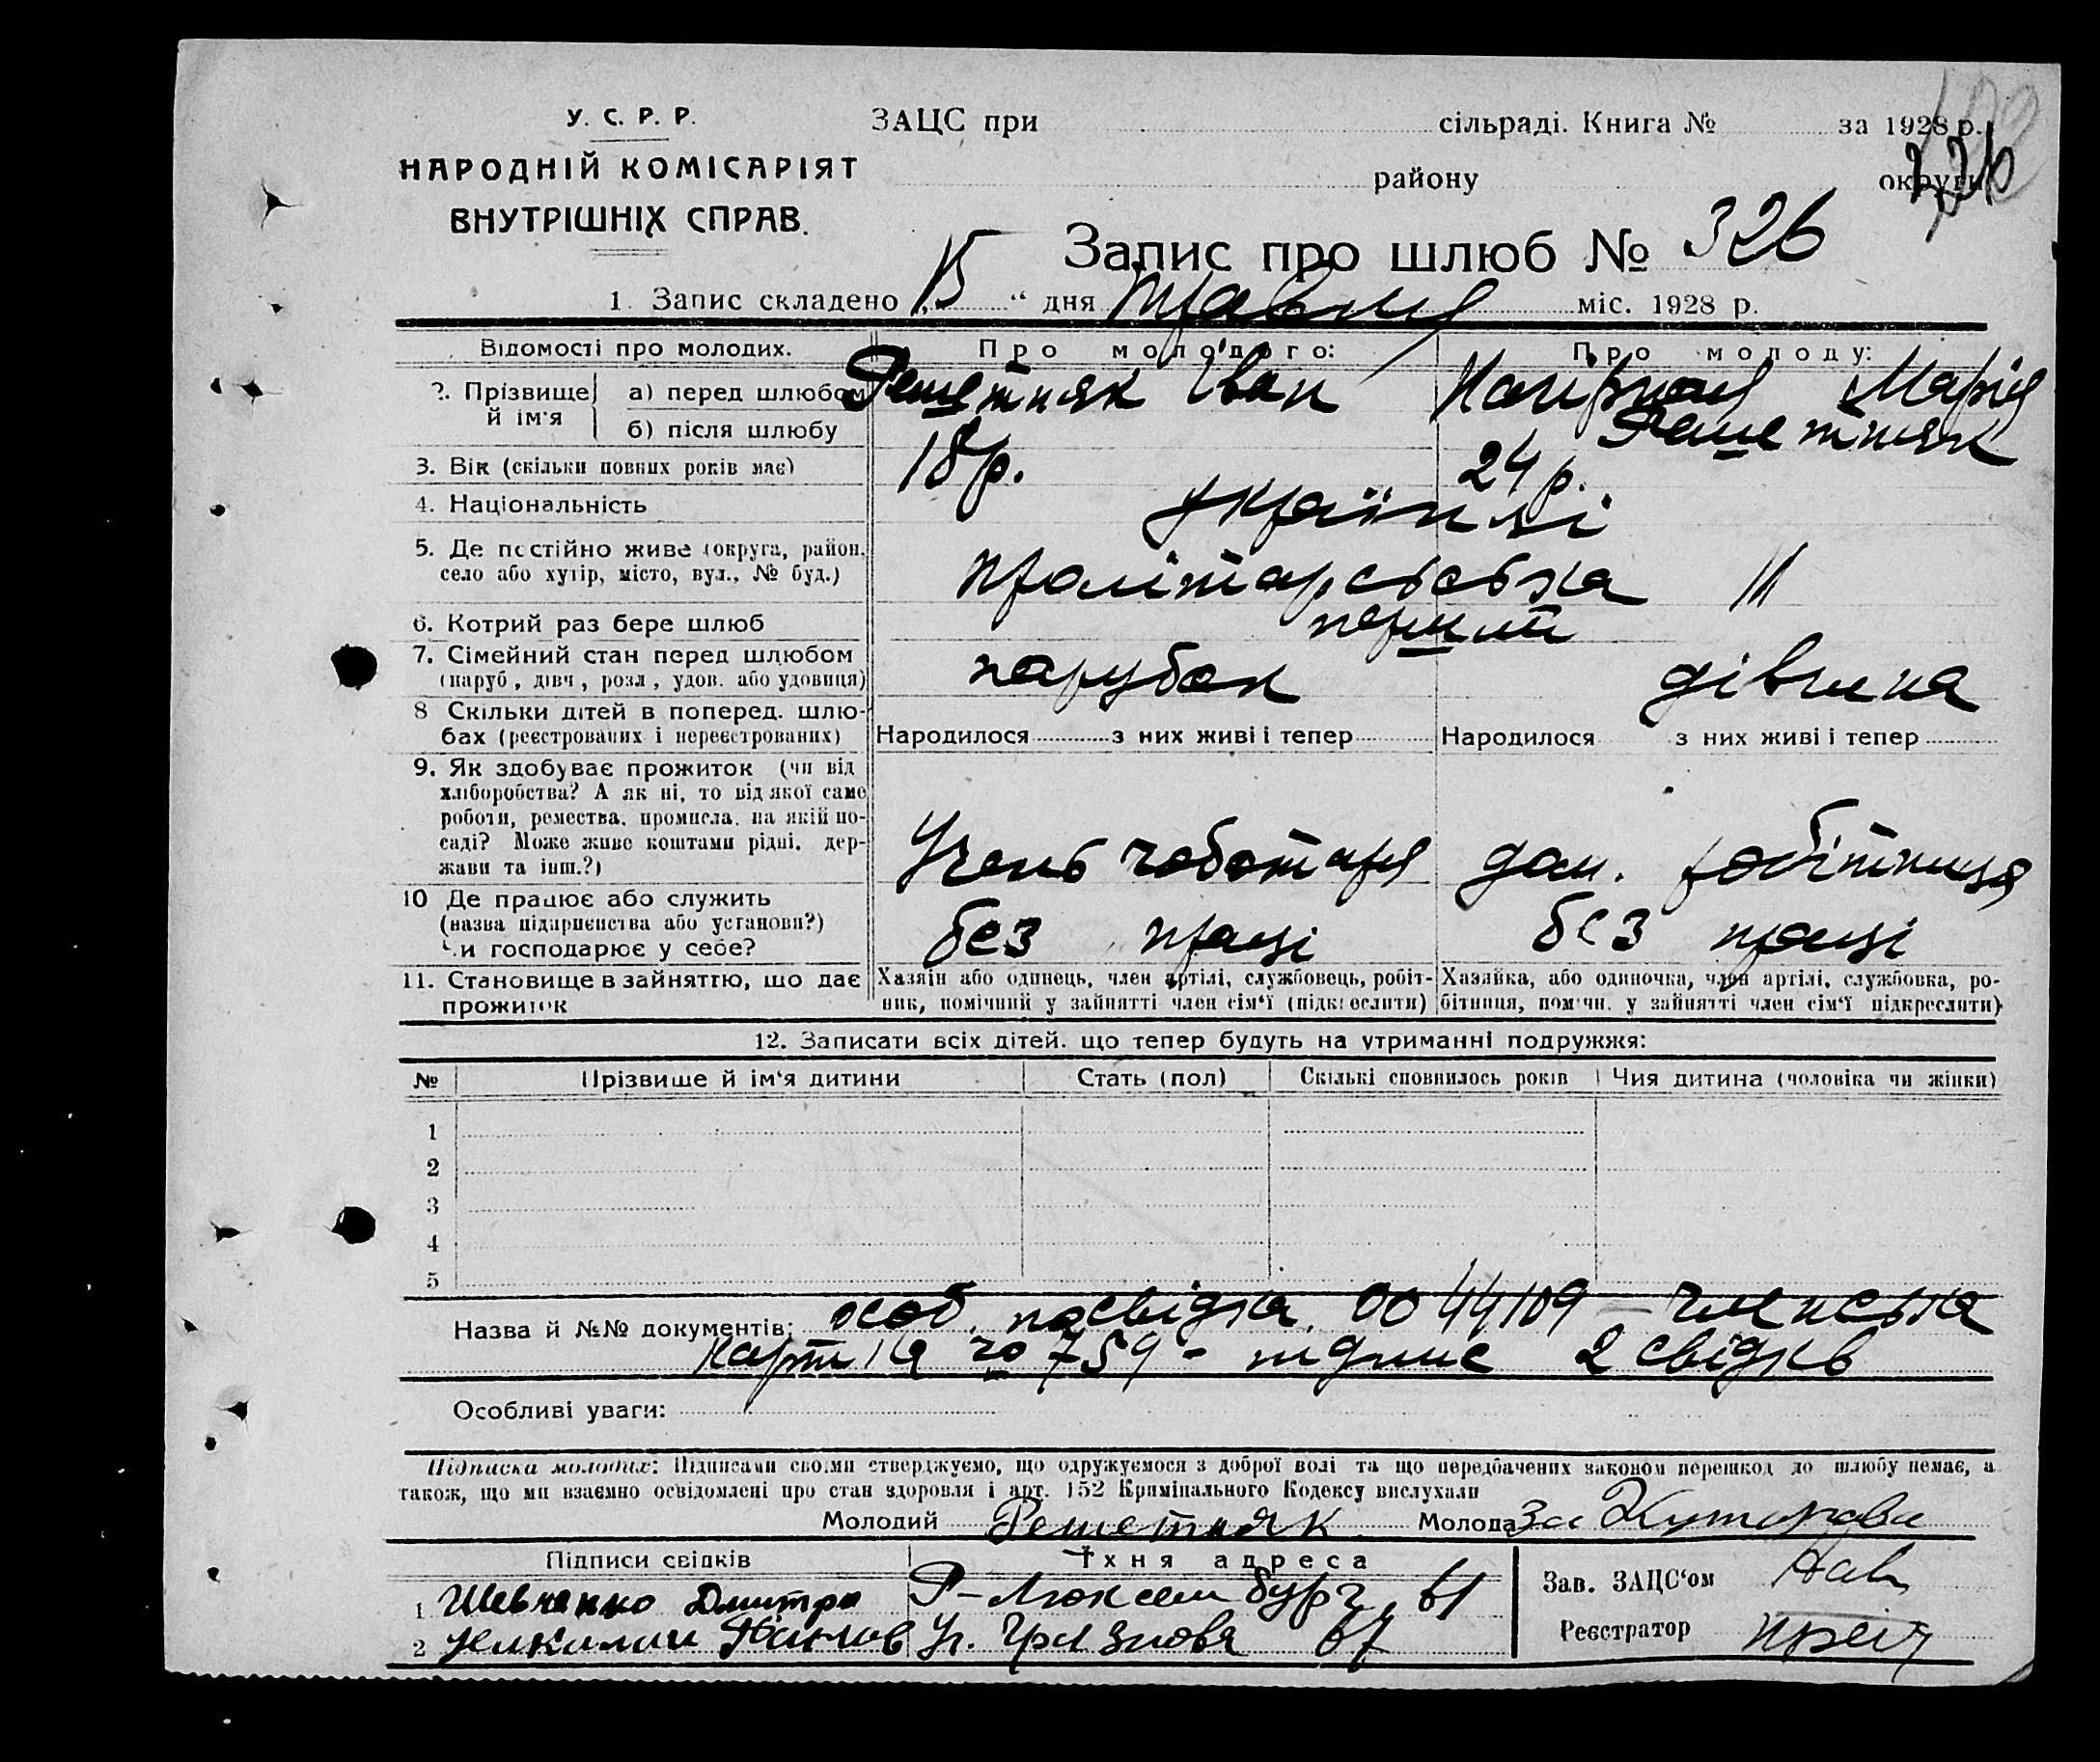 У. С. Р. Р.
НАРОДНІЙ КОМІСАРІЯТ
ВНУТРІШНІХ СПРАВ.
ЗАЦС при сільраді. Книга № за 1928 р.
району округи
Запис про шлюб № 326
1. Запис складено „15“ дня травня міс. 1928 р.
Відомості про молодих. Про молодого: Про молоду:
2. Прізвище й ім'я
а) перед шлюбом Решетняк Іван Марія
б) після шлюбу Решетняк
3. Вік (скільки повних років має) 18 р. 24 р.
4. Національність українці
5. Де постійно живе (округа, район, село або хутір, місто, вул., № буд.) пролітарсьська "
6. Котрий раз бере шлюб перший
7. Сімейний стан перед шлюбом (паруб, дівч, розл, удов. або удовиця) парубок дівчина
8 Скільки дітей в поперед. шлюбах (реєстрованих і нереєстрованих) Народилося з них живі і тепер Народилося з них живі і тепер
9. Як здобуває прожиток (чи від хліборобства? А як ні, то від якої саме роботи, ремества, промисла, на якій посаді? Може живе коштами рідні, держави та інш.?) Учень чоботаря дом. робітниця
10 Де працює або служить (назва підприємства або установи?) Чи господарює у себе? без праці без праці
11. Становище в зайняттю, що дає прожиток
Хазяїн або одинець, член артілі, службовець, робітник, помічний у зайнятті член сім'ї (підкреслити)
Хазяйка, або одиночка, член артілі, службовка, робітниця, помічн. у зайнятті член сім'ї підкреслити)
12. Записати всіх дітей, що тепер будуть на утриманні подружжя:
№ Прізвище й ім'я дитини Стать (пол) Скількі сповнилось років Чия дитина (чоловіка чи жінки)
1
2
3
4
5
Назва й №№ документів: особ. посвідка. 00 44109 – членська
картка № 759 - підпис 2 свідків
Особливі уваги:
Підписка молодих: Підписами своїми стверджуємо, що одружуємося з доброї волі та що передбачених законом перешкод до шлюбу немає, а
також, що ми взаємно освідомлені про стан здоровля і арт. 152 Кримінального Кодексу вислухали
Молодий Решетняк Молода за
Підписи свідків Їхня адреса
1 Шевченко Дмитро Р-Люксембург, 61
2 Павлов Ул. Грязнова 67
Зав. ЗАЦС'ом
Реєстратор